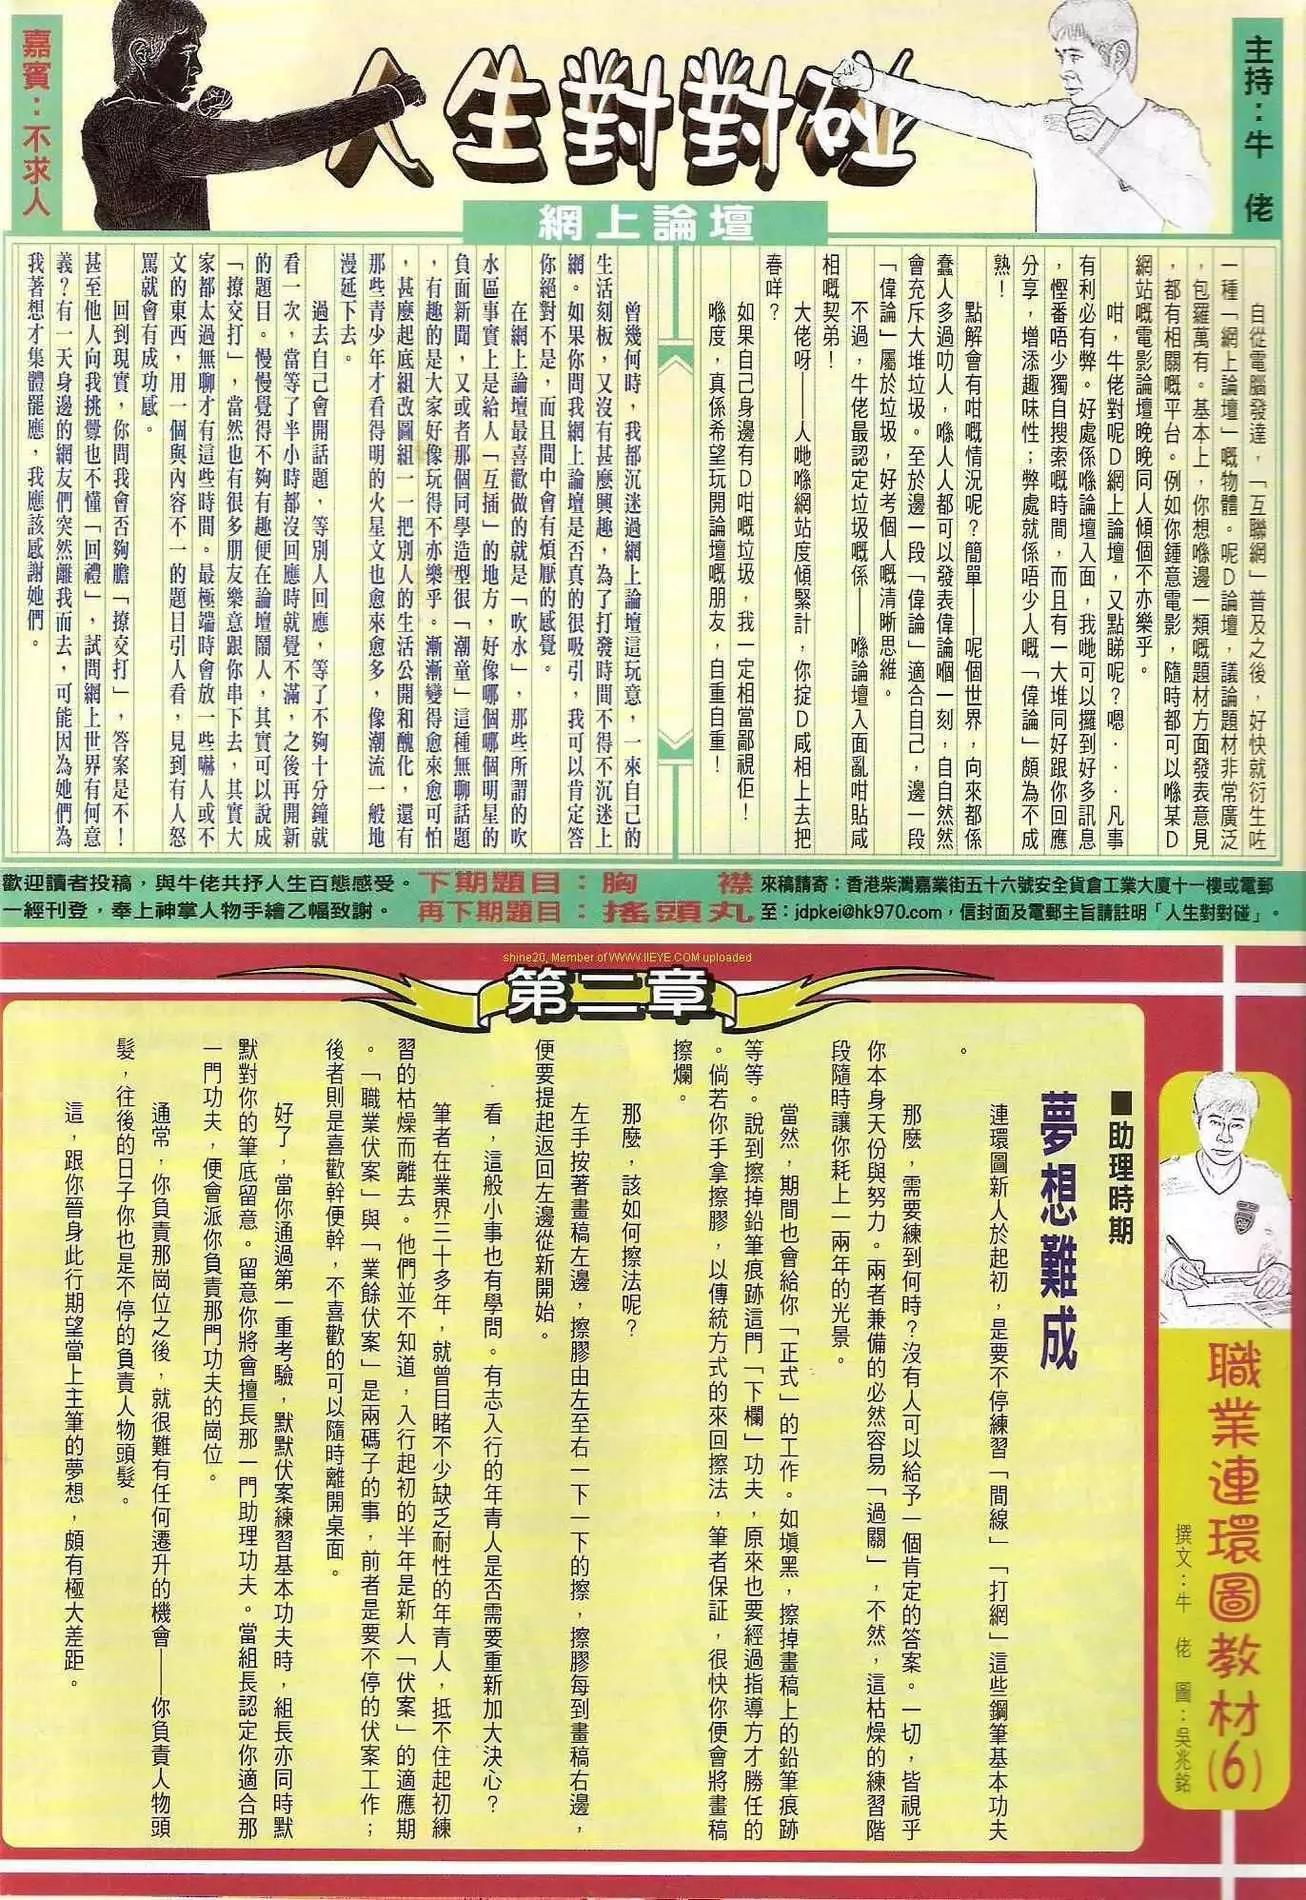 主持：牛　佬
人生對對碰
嘉賓：不求人
網上論壇
自從電腦發達，「互聯網」普及之後，好快就衍生咗
一種「網上論壇」嘅物體。呢D論壇，議論題材非常廣泛
，包羅萬有。基本上，你想喺邊一類嘅題材方面發表意見
，都有相關嘅平台。例如你鍾意電影，隨時都可以喺某D
網站嘅電影論壇晚晚同人傾個不亦樂乎。
咁，牛佬對呢D網上論壇，又點睇呢？嗯．．．凡事
有利必有弊。好處係喺論壇入面，我哋可以攞到好多訊息
，慳番唔少獨自搜索嘅時間，而且有一大堆同好跟你回應
分享，增添趣味性；弊處就係唔少人嘅「偉論」頗為不成
熟！
點解會有咁嘅情況呢？簡單——呢個世界，向來都係
蠢人多過叻人，喺人人都可以發表偉論嗰一刻，自自然然
會充斥大堆垃圾。至於邊一段「偉論」適合自己，邊一段
「偉論」屬於垃圾，好考個人嘅清晰思維。
不過，牛佬最認定垃圾嘅係——喺論壇入面亂咁貼咸
相嘅契弟！
大佬呀！——人哋喺網站度傾緊計，你掟D咸相上去把
春咩？
如果自己身邊有D咁嘅垃圾，我一定相當鄙視佢！
喺度，真係希望玩開論壇嘅朋友，自重自重！
曾幾何時，我都沉迷過網上論壇這玩意，一來自己的
生活刻板，又沒有甚麼興趣，為了打發時間不得不沉迷上
網。如果你問我網上論壇是否真的很吸引，我可以肯定答
你絕對不是，而且間中會有煩厭的感覺。
在網上論壇最喜歡做的就是「吹水」，那些所謂的吹
水區事實上是給人「互插」的地方，好像哪個哪個明星的
負面新聞，又或者那個同學造型很「潮童」這種無聊話題
，有趣的是大家好像玩得不亦樂乎。漸漸變得愈來愈可怕
，甚麼起底組改圖組一一把別人的生活公開和醜化，還有
那些青少年才看得明的火星文也愈來愈多，像潮流一般地
漫延下去。
過去自己會開話題，等別人回應，等了不夠十分鐘就
看一次，當等了半小時都沒回應時就覺不滿，之後再開新
的題目。慢慢覺得不夠有趣便在論壇鬧人，其實可以說成
「撩交打」，當然也有很多朋友樂意跟你串下去，其實大
家都太過無聊才有這些時間。最極端時會放一些嚇人或不
文的東西，用一個與內容不一的題目引人看，見到有人怒
罵就會有成功感。
回到現實，你問我會否夠膽「撩交打」，答案是不！
甚至他人向我挑釁也不懂「回禮」，試問網上世界有何意
義？有一天身邊的網友們突然離我而去，可能因為她們為
我著想才集體罷應，我應該感謝她們。
歡迎讀者投稿，與牛佬共抒人生百態感受。
一經刊登，奉上神掌人物手繪乙幅致謝。
下期題目：胸　襟
再下期題目：搖頭丸
來稿請寄：香港柴灣嘉業街五十六號安全貨倉工業大廈十一樓或電郵
至：jdpkei@hk970.com，信封面及電郵主旨請註明「人生對對碰」。
shine20, Member of WWW.IIEYE.COM uploaded
第二章
職業連環圖教材(6)
撰文：牛　佬　圖：吳兆銘
■助理時期
夢想難成
連環圖新人於起初，是要不停練習「間線」「打網」這些鋼筆基本功夫
。
那麼，需要練到何時？沒有人可以給予一個肯定的答案。一切，皆視乎
你本身天份與努力。兩者兼備的必然容易「過關」，不然，這枯燥的練習階
段隨時讓你耗上一兩年的光景。
當然，期間也會給你「正式」的工作。如填黑，擦掉畫稿上的鉛筆痕跡
等等。說到擦掉鉛筆痕跡這門「下欄」功夫，原來也要經過指導方才勝任的
。倘若你手拿擦膠，以傳統方式的來回擦法，筆者保証，很快你便會將畫稿
擦爛。
那麼，該如何擦法呢？
左手按著畫稿左邊，擦膠由左至右一下一下的擦，擦膠每到畫稿右邊，
便要提起返回左邊從新開始。
看，這般小事也有學問。有志入行的年青人是否需要重新加大決心？
筆者在業界三十多年，就曾目睹不少缺乏耐性的年青人，抵不住起初練
習的枯燥而離去。他們並不知道，入行起初的半年是新人「伏案」的適應期
。「職業伏案」與「業餘伏案」是兩碼子的事，前者是要不停的伏案工作；
後者則是喜歡幹便幹，不喜歡的可以隨時離開桌面。
好了，當你通過第一重考驗，默默伏案練習基本功夫時，組長亦同時默
默對你的筆底留意。留意你將會擅長那一門助理功夫。當組長認定你適合那
一門功夫，便會派你負責那門功夫的崗位。
通常，你負責那崗位之後，就很難有任何遷升的機會——你負責人物頭
髮，往後的日子你也是不停的負責人物頭髮。
這，跟你晉身此行期望當上主筆的夢想，頗有極大差距。